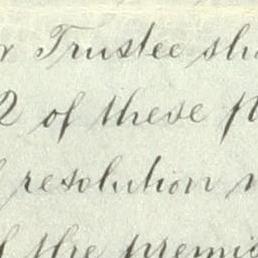 r Trustee sh
2 of these p
resolution
f the premi